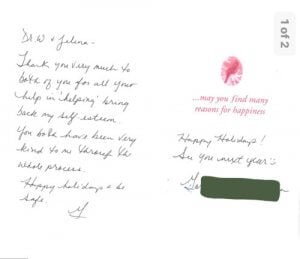 Dr W & Jelena-
Thank you very much to
both of you for all your
help in 'helping' bring
back my self esteem.
You both have been very
kind to me through the
whole process.
Happy holidays & be
safe.
...may you find many
reasons for happiness
Happy Holidays!
See you next year
1 of 2